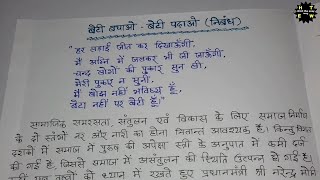 बेटी बचाओ - बेटी पढ़ाओ (निबंध)
"हर लड़ाई जीत कर दिखाऊँगी,
मैं अग्नि में जलकर भी जी जाऊँगी,
चन्द लोगों की पुकार सुन ली,
मेरी पुकार न सुनी,
मैं बोझ नहीं भविष्य हूँ,
बेटा नहीं पर बेटी हूँ।"
सामाजिक समरसता, संतुलन एवं विकास के लिए समाज निर्माण
के दो स्तंभों नर और नारी का होना नितान्त आवश्यक है। किन्तु विगत
दशकों में समाज में पुरुष की अपेक्षा स्त्री के अनुपात में कमी दर्ज
की गई है, जिससे समाज में असंतुलन की स्थिति उत्पन्न हो गई है।
तथ्यों को ध्यान में रखते हुए प्रधानमन्त्री श्री नरेन्द्र मोदी